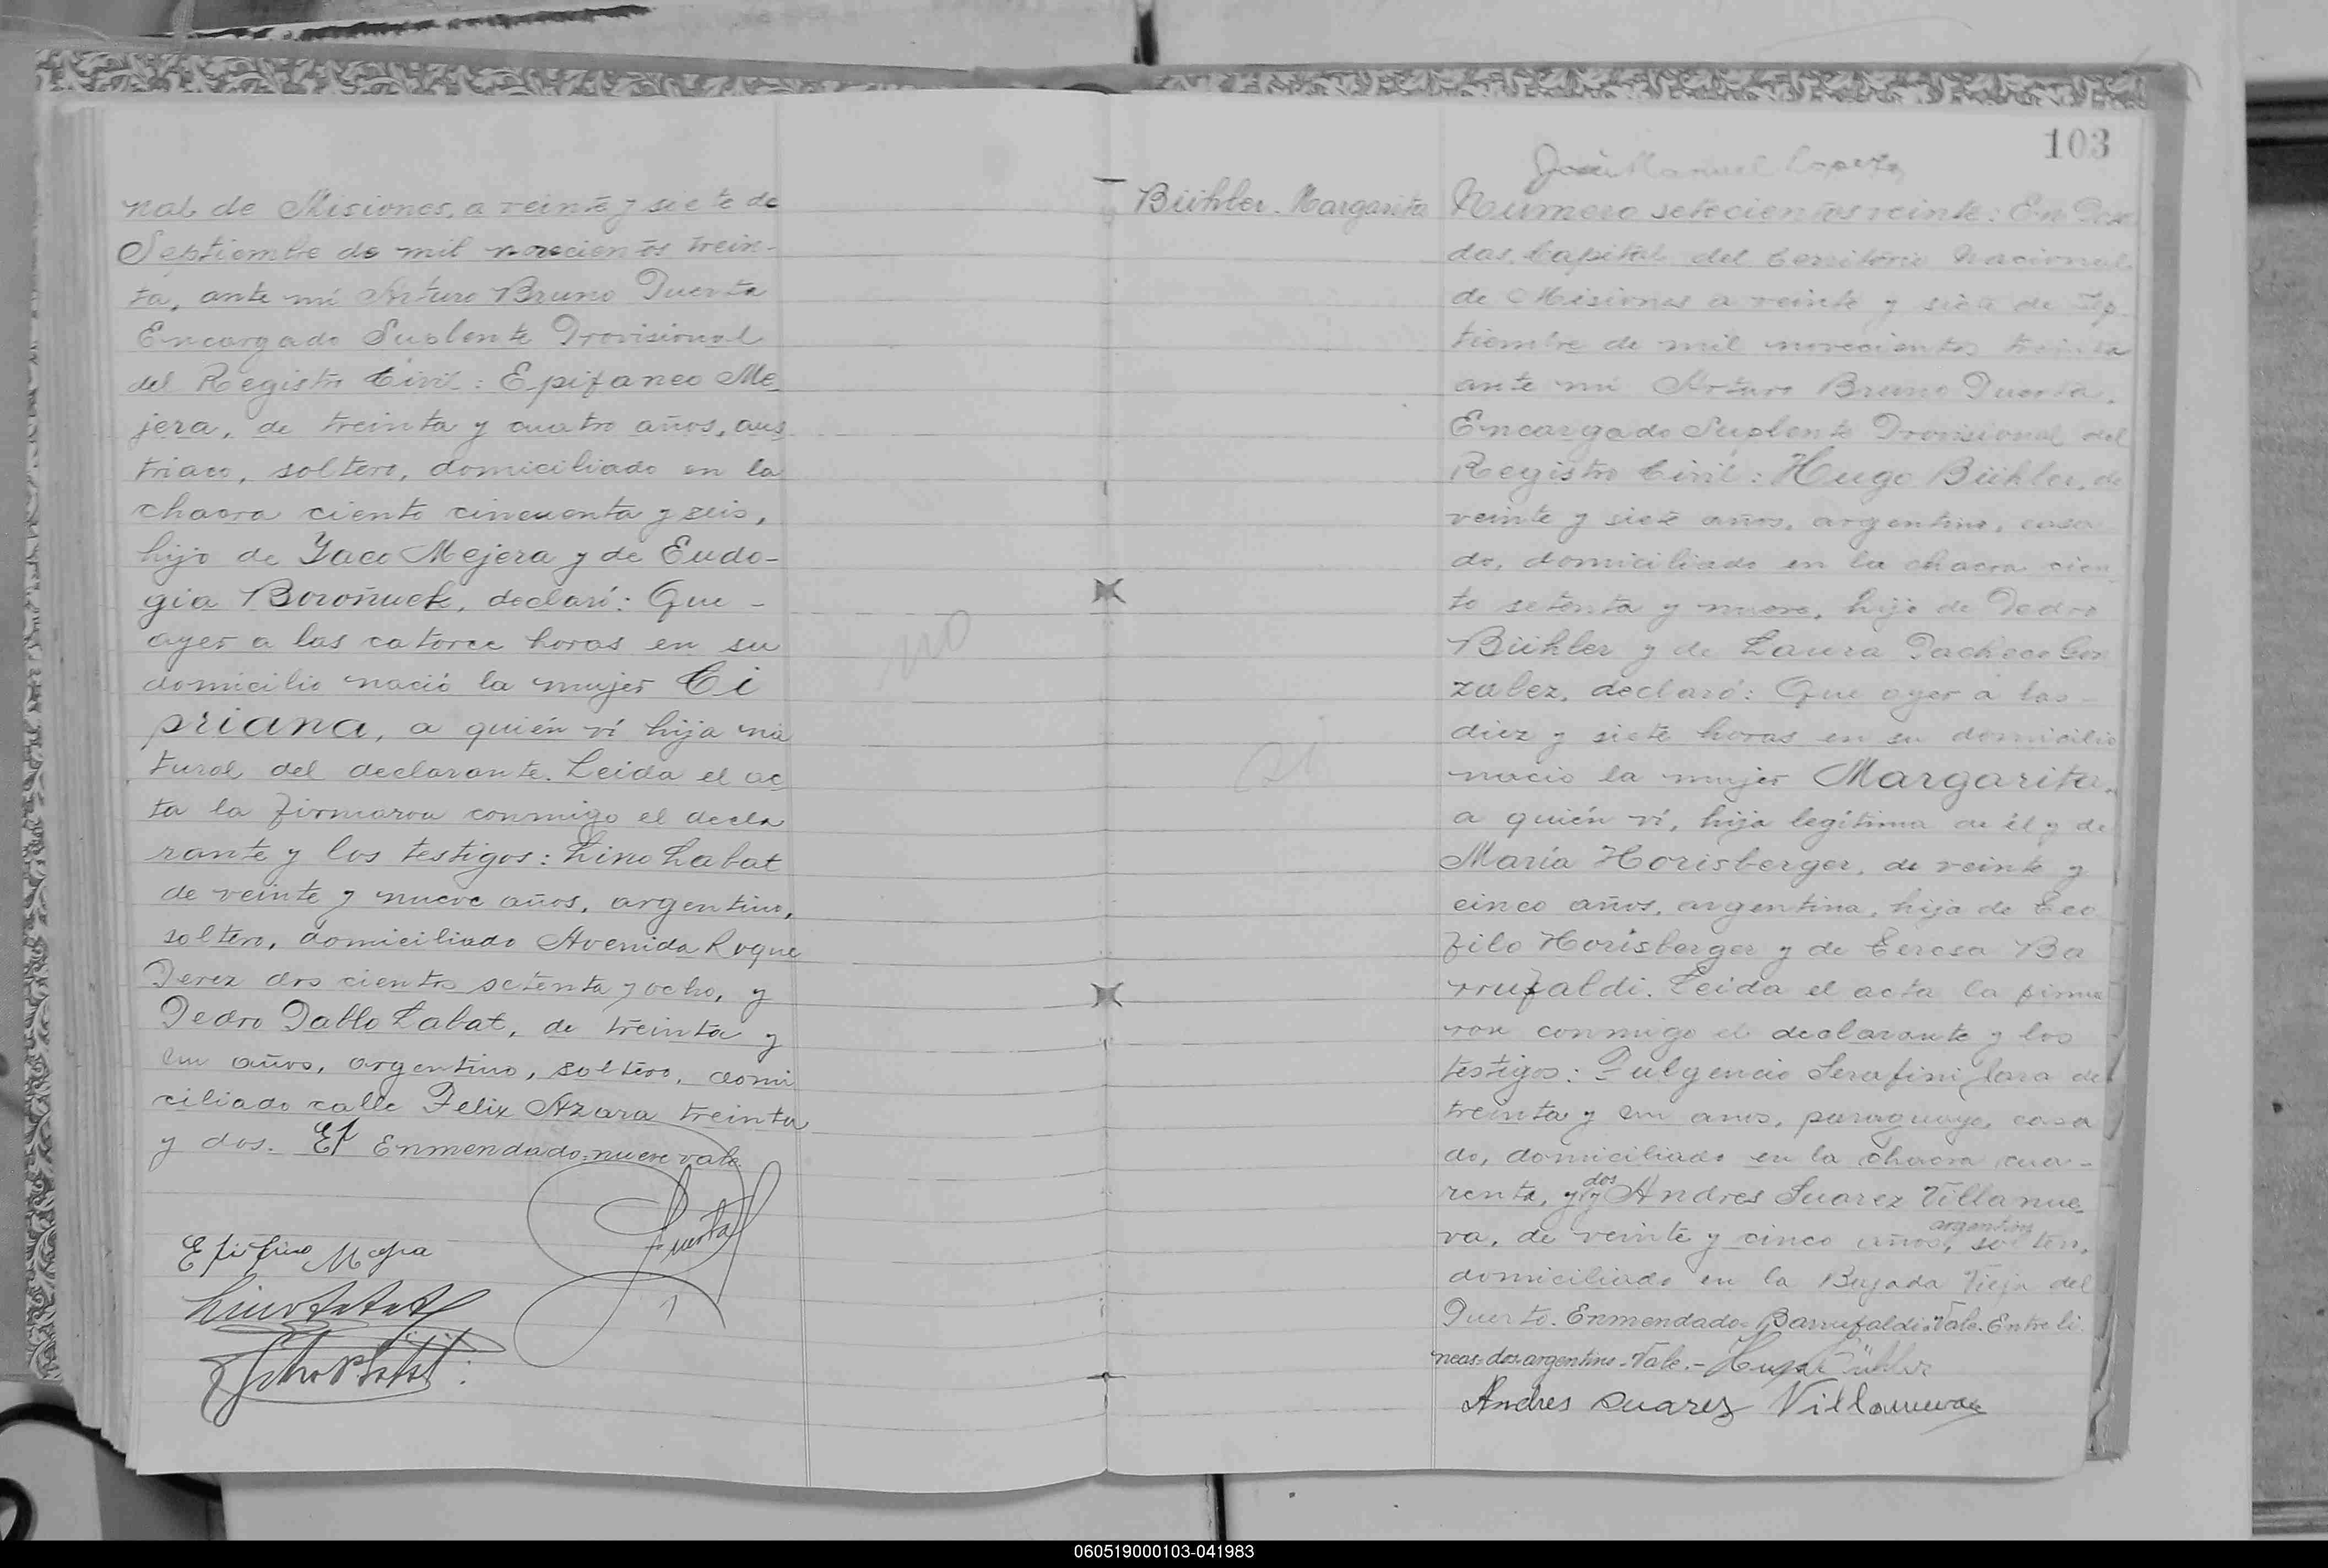 nal de Misiones, a veinte y siete de
Septiembre de mil novecientos trein-
ta, ante mí Arturo Bruno Puerta
Encargado Suplente Provisional
del Registro Civil: Epifaneo Me
jera, de treinta y cuatro años, aus
triaco, soltero, domiciliado en la
chacra ciento cincuenta y seis,
hijo de Yaco Mejera y de Eudo-
gia Boroñuek, declaró: Que -
ayer a las catorce horas en su
domicilio nació la mujer Ci
priana, a quién ví hija na
tural del declarante. Leida el ac
ta la firmaron conmigo el decla
rante y los testigos: Lino Labat
de veinte y nueve años, argentino,
soltero, domiciliado Avenida Roque
Perez dos cientos setenta y ocho, y
Pedro Pablo Labat, de treinta y
un años, argentino, soltero, domi
ciliado calle Felix Azara treinta
y dos. Enmendado: nueve vale
Puerta
no
103
José Manuel
Bühler. Margarita
Numero setecientos veinte: En Posa
das, Capital del Territorio Nacional
de Misiones a veinte y siete de Sep
tiembre de mil novecientos treinta
ante mí Arturo Bruno Puerta,
Encargado Suplente Provisional del
Registro Civil: Hugo Bühler, de
veinte y siete años, argentino, casa
do, domiciliado en la chacra cien
to setenta y nueve, hijo de Pedro
Bühler y de Laura Pacheco Gon
zalez, declaró: Que ayer a las -
diez y siete horas en su domicilio
nació la mujer Margarita,
a quién ví, hija legítima de él y de
María Horisberger, de veinte y
cinco años, argentina, hija de Teo
filo Horisberger y de Teresa Ba
rrufaldi. Leida el acta la firma
ron conmigo el declarante y los
testigos: Fulgencio Serafini Jara de
treinta y un años, paraguayo, casa
do, domiciliado en la chacra cua-
renta, y dos y Andres Suarez Villanue
va, de veinte y cinco años, argentino soltero,
domiciliado en la Bajada Vieja del
Puerto. Enmendado: Barrufaldi: Vale. Entreli
neas: dos. argentino. Vale. - Hugo Bühler
Andres Suarez Villanueva
si
060519000103-041983